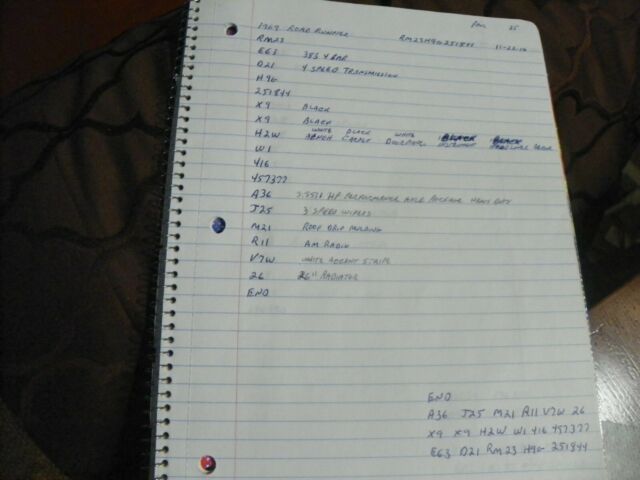 25
1969 ROAD RUNNER RM23H9G251844 11-22-16
RM23
E63 383 4 BAR
D21 4 SPEED TRANSMISSION
H9G
251844
X9 BLACK
X9 BLACK
H2W WHITE BLACK WHITE BLACK BLACK
CARPET
W1
416
457377
A36 3.55:1 HP PERFORMANCE AXLE PACKAGE HEAVY DUTY
J25 3 SPEED WIPERS
M21 ROOF DRIP MOLDING
R11 AM RADIO
V7W WHITE ACCENT STRIPE
26 26" RADIATOR
END
END
A36 J25 M21 R11 V7W 26
X9 X9 H2W W1 416 457377
E63 D21 RM23 H9G 251844